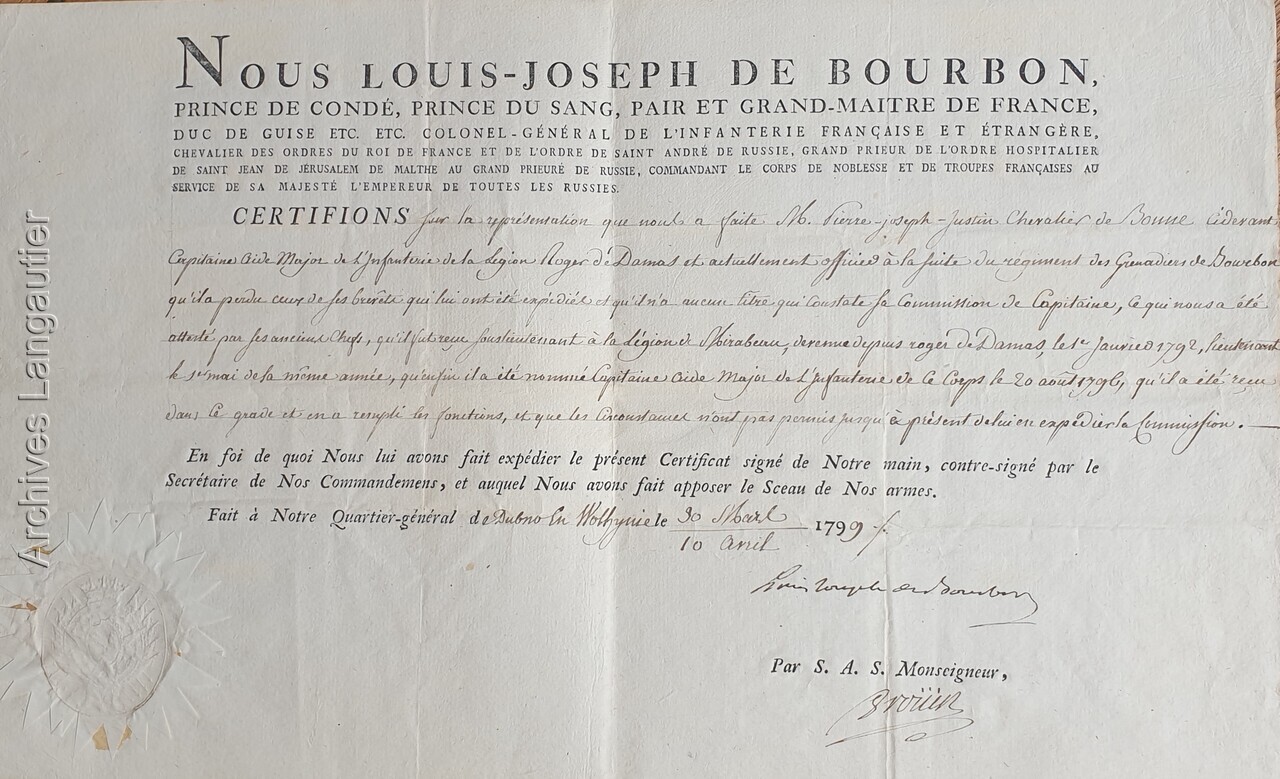 NOUS LOUIS-JOSEPH DE BOURBON,
PRINCE DE CONDÉ, PRINCE DU SANG, PAIR ET GRAND-MAITRE DE FRANCE,
DUC DE GUISE ETC. ETC. COLONEL-GÉNÉRAL DE L'INFANTERIE FRANÇAISE ET ÉTRANGÈRE,
CHEVALIER DES ORDRES DU ROI DE FRANCE ET DE L'ORDRE DE SAINT ANDRÉ DE RUSSIE, GRAND PRIEUR DE L'ORDRE HOSPITALIER
DE SAINT JEAN DE JÉRUSALEM DE MALTHE AU GRAND PRIEURÉ DE RUSSIE, COMMANDANT LE CORPS DE NOBLESSE ET DE TROUPES FRANÇAISES AU
SERVICE DE SA MAJESTÉ L'EMPEREUR DE TOUTES LES RUSSIES.
CERTIFIONS sur la représentation que nous a faite M. Pierre-joseph-Justin Chevalier de Bonne cidevant
Capitaine aide Major de L'Infanterie de la Légion Roger de Damas et actuellement officier à la suite du régiment des Grenadiers de Bourbon
qu'il a perdu ceux de ses brevets qui lui ont été expédiés et qu'il n'a aucun titre qui constate sa Commission de Capitaine, ce qui nous a été
attesté par ses anciens Chefs, qu'il fut reçu souslieutenant à la Légion de Mirabeau, devenue depuis roger de Damas, le 1er Janvier 1792, lieutenant
le 1er mai de la même année, qu'enfin il a été nommé Capitaine aide Major de L'Infanterie de ce Corps le 20 août 1796, qu'il a été reçu
dans ce grade et en a rempli les fonctions, et que les circonstances n'ont pas permis jusqu'à présent de lui en expédier la Commission.
En foi de quoi Nous lui avons fait expédier le présent Certificat signé de Notre main, contre-signé par le
Secrétaire de Nos Commandemens, et auquel Nous avons fait apposer le Sceau de Nos armes.
Fait à Notre Quartier-général de Dubno En Wolhynie le 30 Mars 1799
10 Avril
Louis Joseph de Bourbon
Par S. A. S. Monseigneur,
Drouin
Archives Langautier